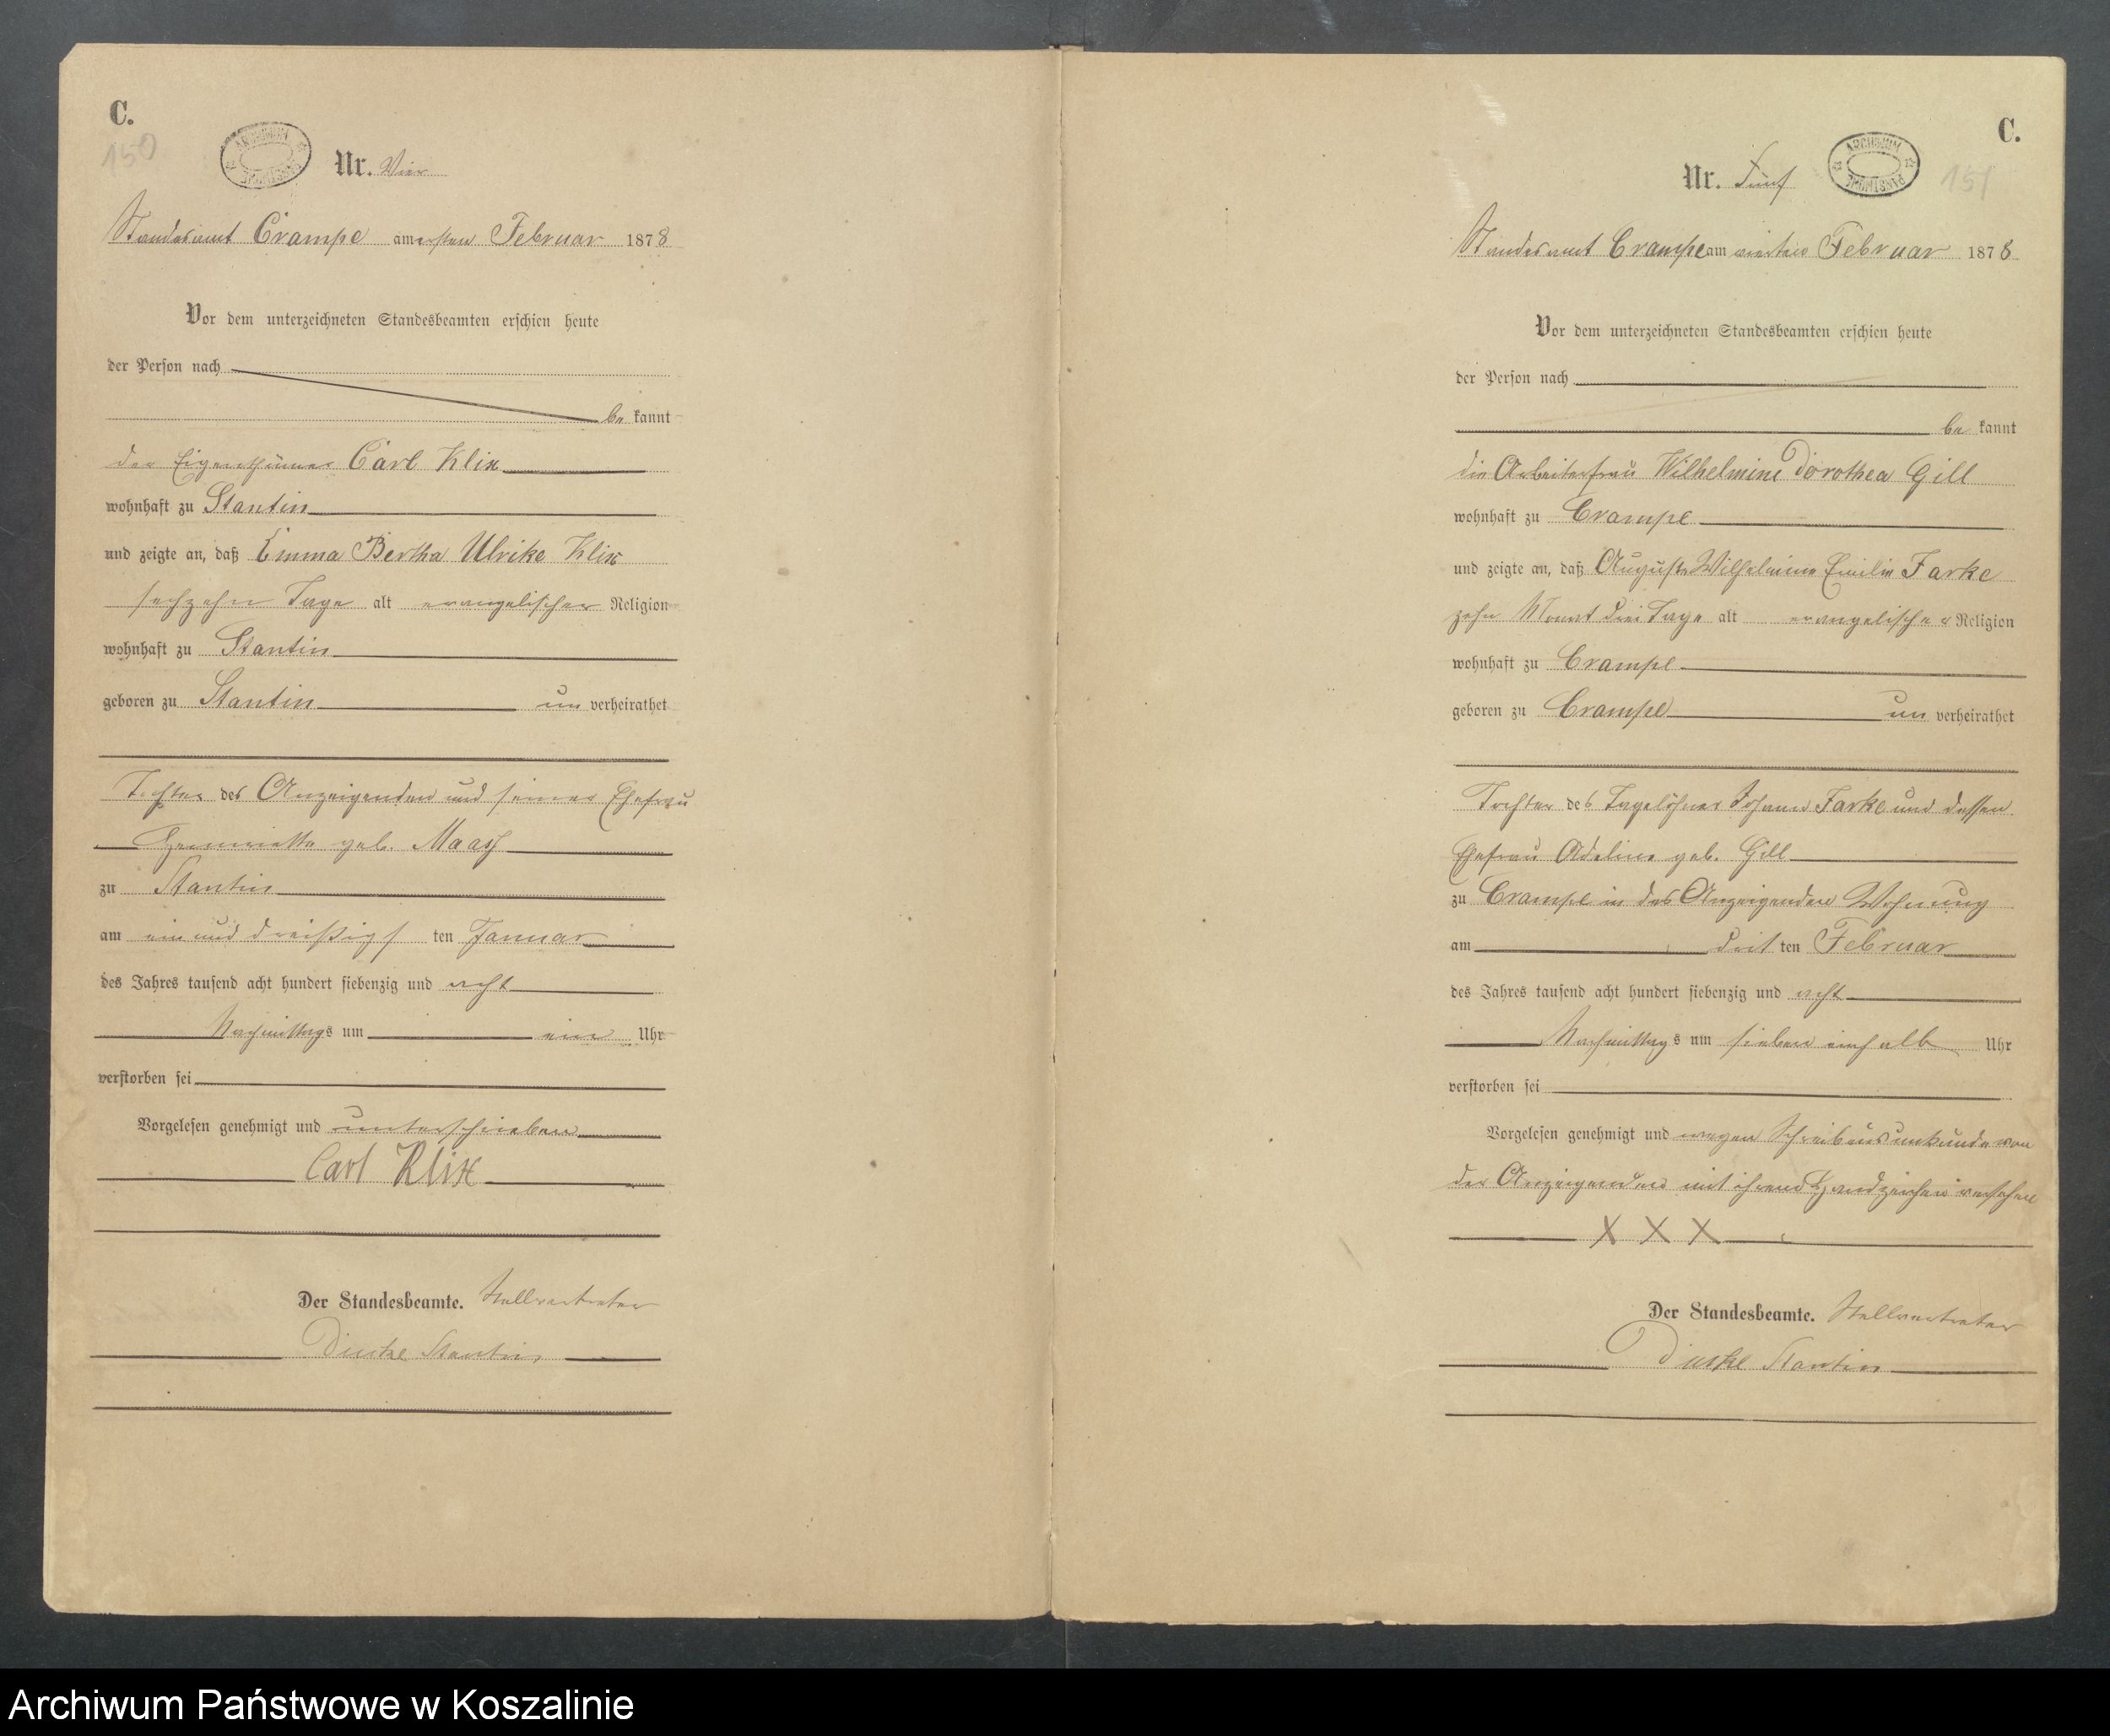 C.
150
ARCHIWUM PAŃSTWOWE
Nr. Vier
Standesamt Crampe am ersten Februar 1878
Vor dem unterzeichneten Standesbeamten erschien heute
der Person nach
be kannt
der Eigenthümer Carl Klix
wohnhaft zu Stantin
und zeigte an, daß Emma Bertha Ulrike Klix
sechzehn Tage alt evangelischer Religion
wohnhaft zu Stantin
geboren zu Stantin un verheirathet
Tochter des Anzeigenden und seiner Ehefrau
Henriette geb. Maass
zu Stantin
am ein und dreißigs ten Januar
des Jahres tausend acht hundert siebenzig und acht
Nachmittags um ein Uhr
verstorben sei
Vorgelesen genehmigt und unterschrieben
Carl Klix
Der Standesbeamte. Stellvertreter
Stantin
C.
151
ARCHIWUM PAŃSTWOWE
Nr. Fünf
Standesamt Crampe am vierten Februar 1878
Vor dem unterzeichneten Standesbeamten erschien heute
der Person nach
be kannt
die Arbeiterfrau Wilhelmine Dorothea Gill
wohnhaft zu Crampe
und zeigte an, daß Auguste Wilhelmine Emilie Farke
zehn Monat drei Tage alt evangelischer Religion
wohnhaft zu Crampe
geboren zu Crampe un verheirathet
Tochter des Tagelöhner Johann Farke und dessen
Ehefrau Adeline geb. Gill
zu Crampe in der Anzeigenden Wohnung
am drit ten Februar
des Jahres tausend acht hundert siebenzig und acht
Nachmittags um sieben einhalb Uhr
verstorben sei
Vorgelesen genehmigt und wegen Schreibensunkunde von
der Anzeigenden mit ihrem Handzeichen versehen
X X X
Der Standesbeamte. Stellvertreter
Stantin
Archiwum Państwowe w Koszalinie